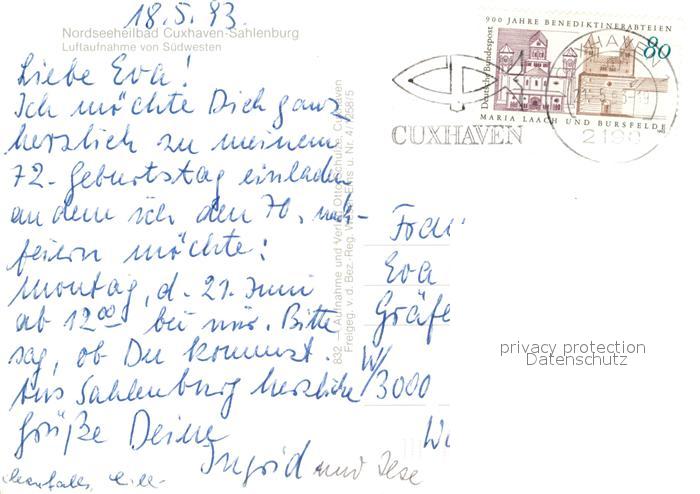 18.5.93
Nordseeheilbad Cuxhaven-Sahlenburg
Luftaufnahme von Südwesten
Liebe Eva!
Ich möchte Dich ganz
herzlich zu meinem
72. Geburtstag einladen
an dem ich den 70. nach-
feiern möchte!
Montag, d. 21. Juni
ab 12⁰⁰ bei mir. Bitte
sag, ob Du kommst.
Aus Sahlenburg herzliche
Grüße Deine
Ingrid und Ilse
832
Aufnahme und Verlag Otto Schulze, Cuxhaven
Freigeg. v. d. Bez.-Reg. Weser-Ems u. Nr. 4
900 JAHRE BENEDIKTINERABTEIEN
Deutsche Bundespost
80
MARIA LAACH UND BURSFELDE
CUXHAVEN
CUXHAVEN
2190
Frau
Eva
Gräfe
W/3000
privacy protection
Datenschutz